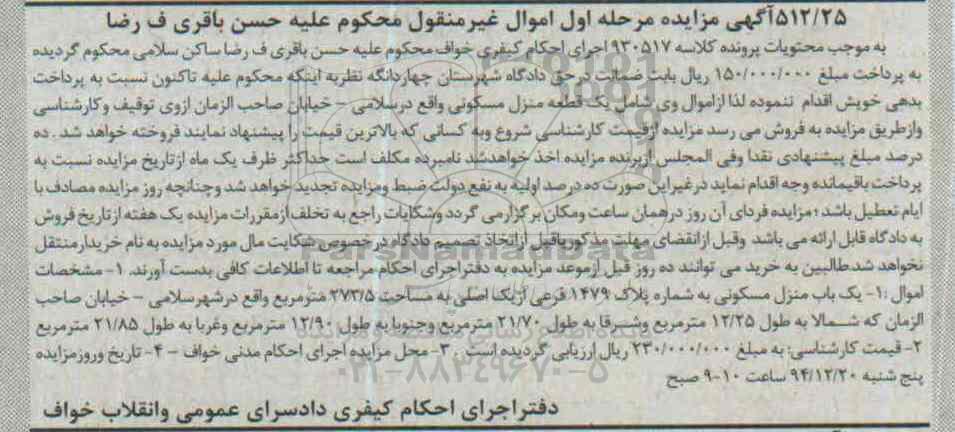 ۵۱۲/۲۵آگهی مزایده مرحله اول اموال غیرمنقول محکوم علیه حسن باقری ف رضا
به موجب محتویات پرونده کلاسه ۹۳۰۵۱۷ اجرای احکام کیفری خواف محکوم علیه حسن باقری ف رضا ساکن سلامی محکوم گردیده
به پرداخت مبلغ ۱۵۰/۰۰۰/۰۰۰ ریال بابت ضمانت درحق دادگاه شهرستان چهاردانگه نظربه اینکه محکوم علیه تاکنون نسبت به پرداخت
بدهی خویش اقدام ننموده لذا ازاموال وی شامل یک قطعه منزل مسکونی واقع درسلامی - خیابان صاحب الزمان ازوی توقیف وکارشناسی
وازطریق مزایده به فروش می رسد مزایده ازقیمت کارشناسی شروع وبه کسانی که بالاترین قیمت را پیشنهاد نمایند فروخته خواهد شد . ده
درصد مبلغ پیشنهادی نقدا وفی المجلس ازبرنده مزایده اخذ خواهدشد نامبرده مکلف است حداکثر ظرف یک ماه ازتاریخ مزایده نسبت به
پرداخت باقیمانده وجه اقدام نماید درغیراین صورت ده درصد اولیه به نفع دولت ضبط ومزایده تجدید خواهد شد وچنانچه روز مزایده مصادف با
ایام تعطیل باشد ؛ مزایده فردای آن روز درهمان ساعت ومکان برگزارمی گردد وشکایات راجع به تخلف ازمقررات مزایده یک هفته ازتاریخ فروش
به دادگاه قابل ارائه می باشد وقبل ازانقضای مهلت مذکوریاقبل ازاتخاذ تصمیم دادگاه درخصوص شکایت مال مورد مزایده به نام خریدارمنتقل
نخواهد شد.طالبین به خرید می توانند ده روز قبل ازموعد مزایده به دفتراجرای احکام مراجعه تا اطلاعات کافی بدست آورند. ۱- مشخصات
اموال :۱- یک باب منزل مسکونی به شماره پلاک ۱۴۷۹ فرعی ازیک اصلی به مساحت ۲۷۳/۵ مترمربع واقع درشهرسلامی - خیابان صاحب
الزمان که شمالا به طول ۱۲/۲۵ مترمربع وشرقا به طول ۲۱/۷۰ مترمربع وجنوبا به طول ۱۲/۹۰ مترمربع وغربا به طول ۲۱/۸۵ مترمربع
۲- قیمت کارشناسی: به مبلغ ۲۳۰/۰۰۰/۰۰۰ ریال ارزیابی گردیده است . ۳- محل مزایده اجرای احکام مدنی خواف - ۴- تاریخ وروزمزایده
پنج شنبه ۹۴/۱۲/۲۰ ساعت ۱۰-۹ صبح
دفتراجرای احکام کیفری دادسرای عمومی وانقلاب خواف
ParsNamadData
۰۲۱-۸۸۳۴۹۶۷۰-۵